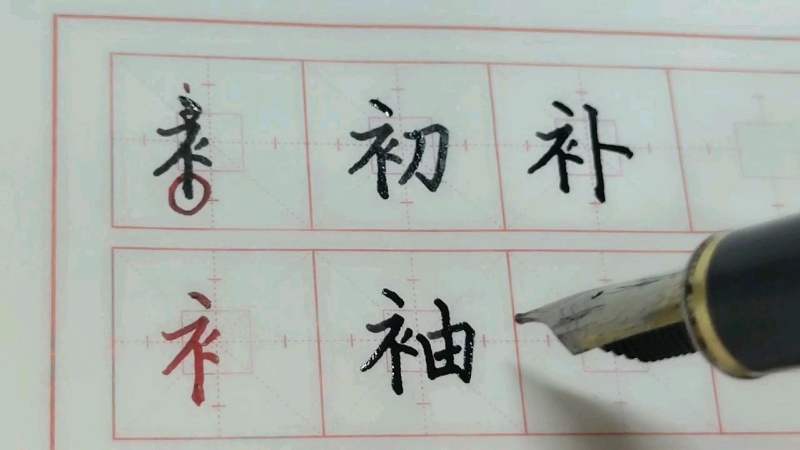 衤初补
衤袖